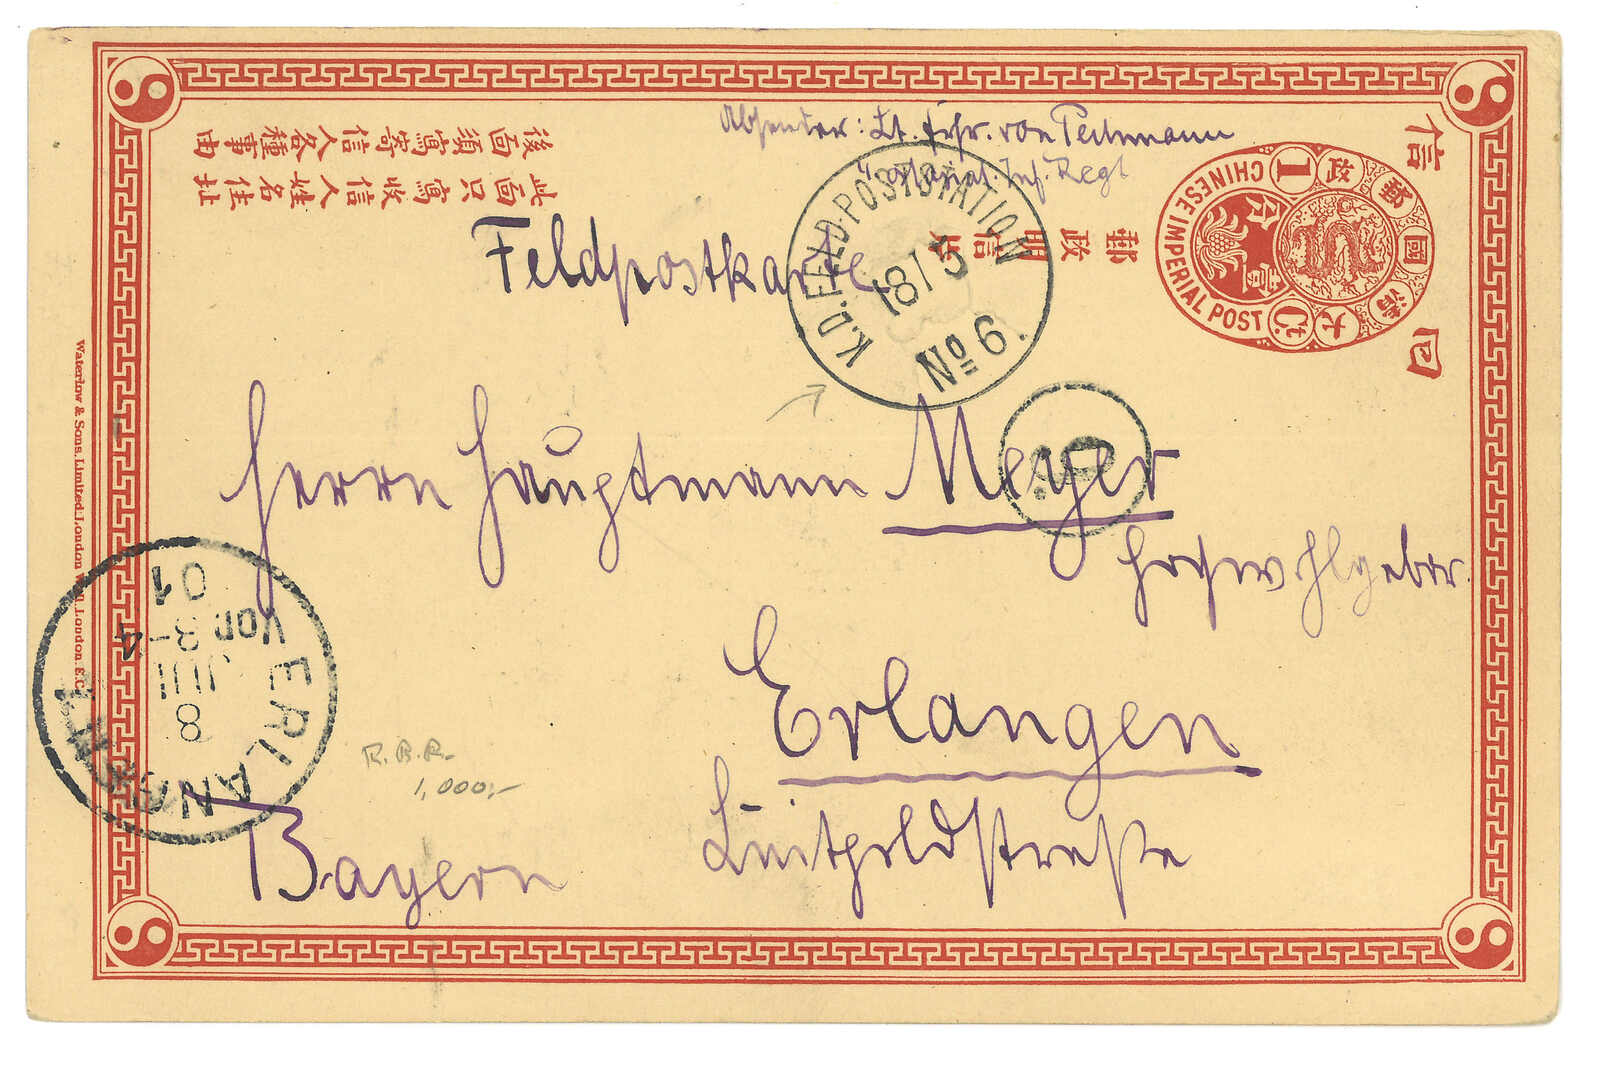 Absender: Lt. Frhr. von Pechmann
4. Ostasiat. Inf. Regt
後面須寫寄信人各種事由
此面只寫收信人姓名住址
郵政
明信片
回信
大清國郵政
CHINESE IMPERIAL POST
1 Ct
壹分
Feldpostkarte
K.D. FELD-POSTSTATION
18/5
No 6.
Herrn Hauptmann Meyer
Hochwohlgebor.
Erlangen
Luitpoldstraße
Bayern
ERLANGEN
8
JUL
Vor. 3-4
01
1,000,-
Waterlow & Sons, Limited, London Wall, London. E.C.